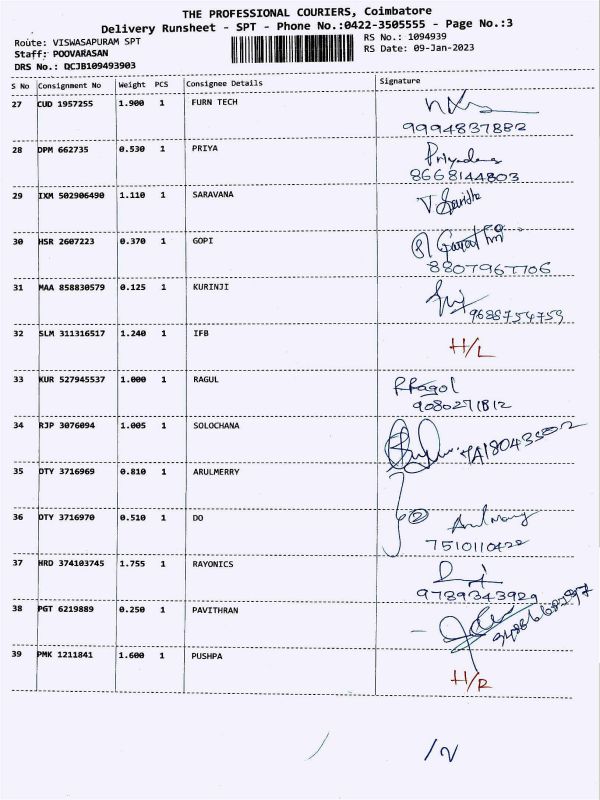 THE PROFESSIONAL COURIERS, Coimbatore
Delivery Runsheet - SPT - Phone No.:0422-3505555 - Page No.:3
Route: VISWASAPURAM SPT RS No.: 1094939
Staff: POOVARASAN RS Date: 09-Jan-2023
DRS No.: DCJB109493903
S No Consignment No Weight PCS Consignee Details Signature
27 CUD 1957255 1.900 1 FURN TECH
9994837882
28 DPM 662735 0.530 1 PRIYA
8668144803
29 IXM 502906490 1.110 1 SARAVANA
30 HSR 2607223 0.370 1 GOPI
8807967706
31 MAA 858830579 0.125 1 KURINJI
9688754759
32 SLM 311316517 1.240 1 IFB
H/L
33 KUR 527945537 1.000 1 RAGUL
34 RJP 3076094 1.005 1 SOLOCHANA
35 DTY 3716969 0.810 1 ARULMERRY
36 DTY 3716970 0.510 1 DO
②
7510110422
37 HRD 374103745 1.755 1 RAYONICS
9789343929
38 PGT 6219889 0.250 1 PAVITHRAN
39 PMK 1211841 1.600 1 PUSHPA
H/R